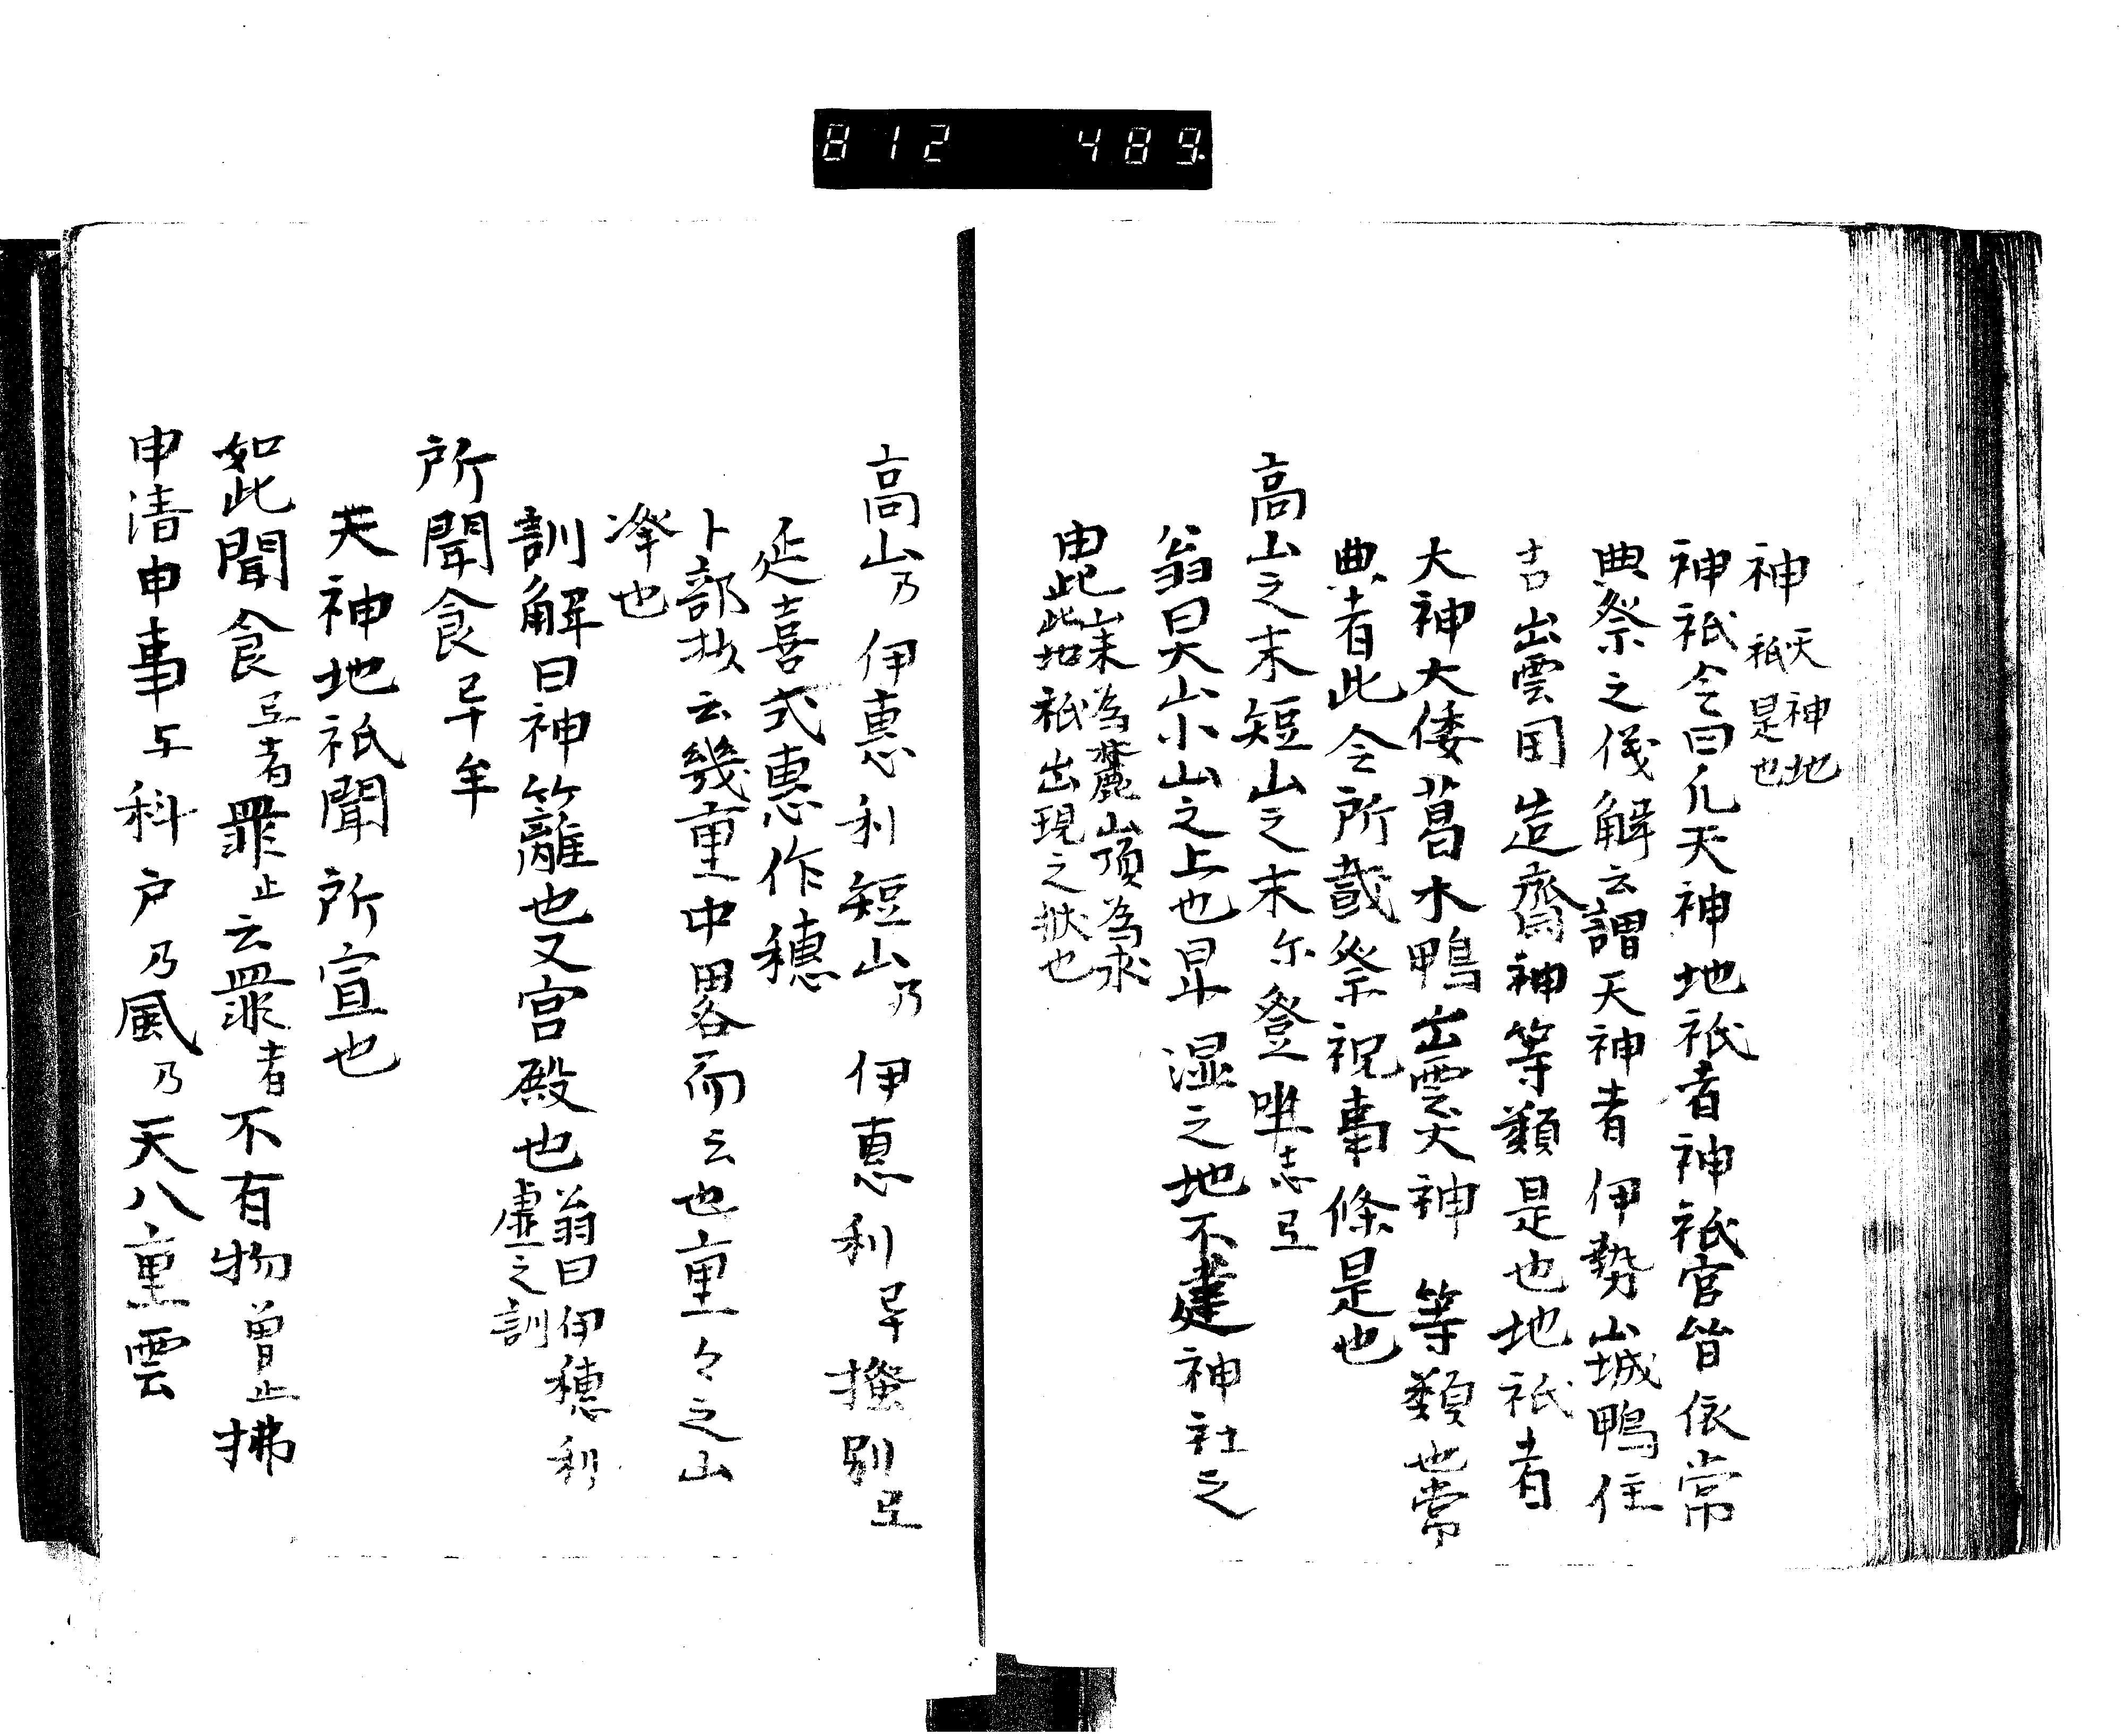 812 489.
神 天神地祇是也
神祇令曰凡天神地祇者神祇官皆依常
典祭之儀解云謂天神者伊勢山城鴨住
吉出雲国造齋神等類是也地祇者
大神大倭葛木鴨出雲大神 等類也常
典者此令所載祭祝事條是也
高山之末短山之末尓登坐志弖
翁曰大山小山之上也卑湿之地不建神社之
由此山末為麓山頂為末此地祇出現之状也
高山乃伊惠利短山乃伊惠利乎撥別弖
延喜式惠作穗
卜部抄云幾重中畧而云也重々之山
峯也
訓解曰神籬也又宮殿也翁曰伊穗利虚之訓
所聞食乎牟
天神地祇聞所宣也
如此聞食弖者罪止云罪者不有物曽止拂
申清申事乎科戸乃風乃天八重雲